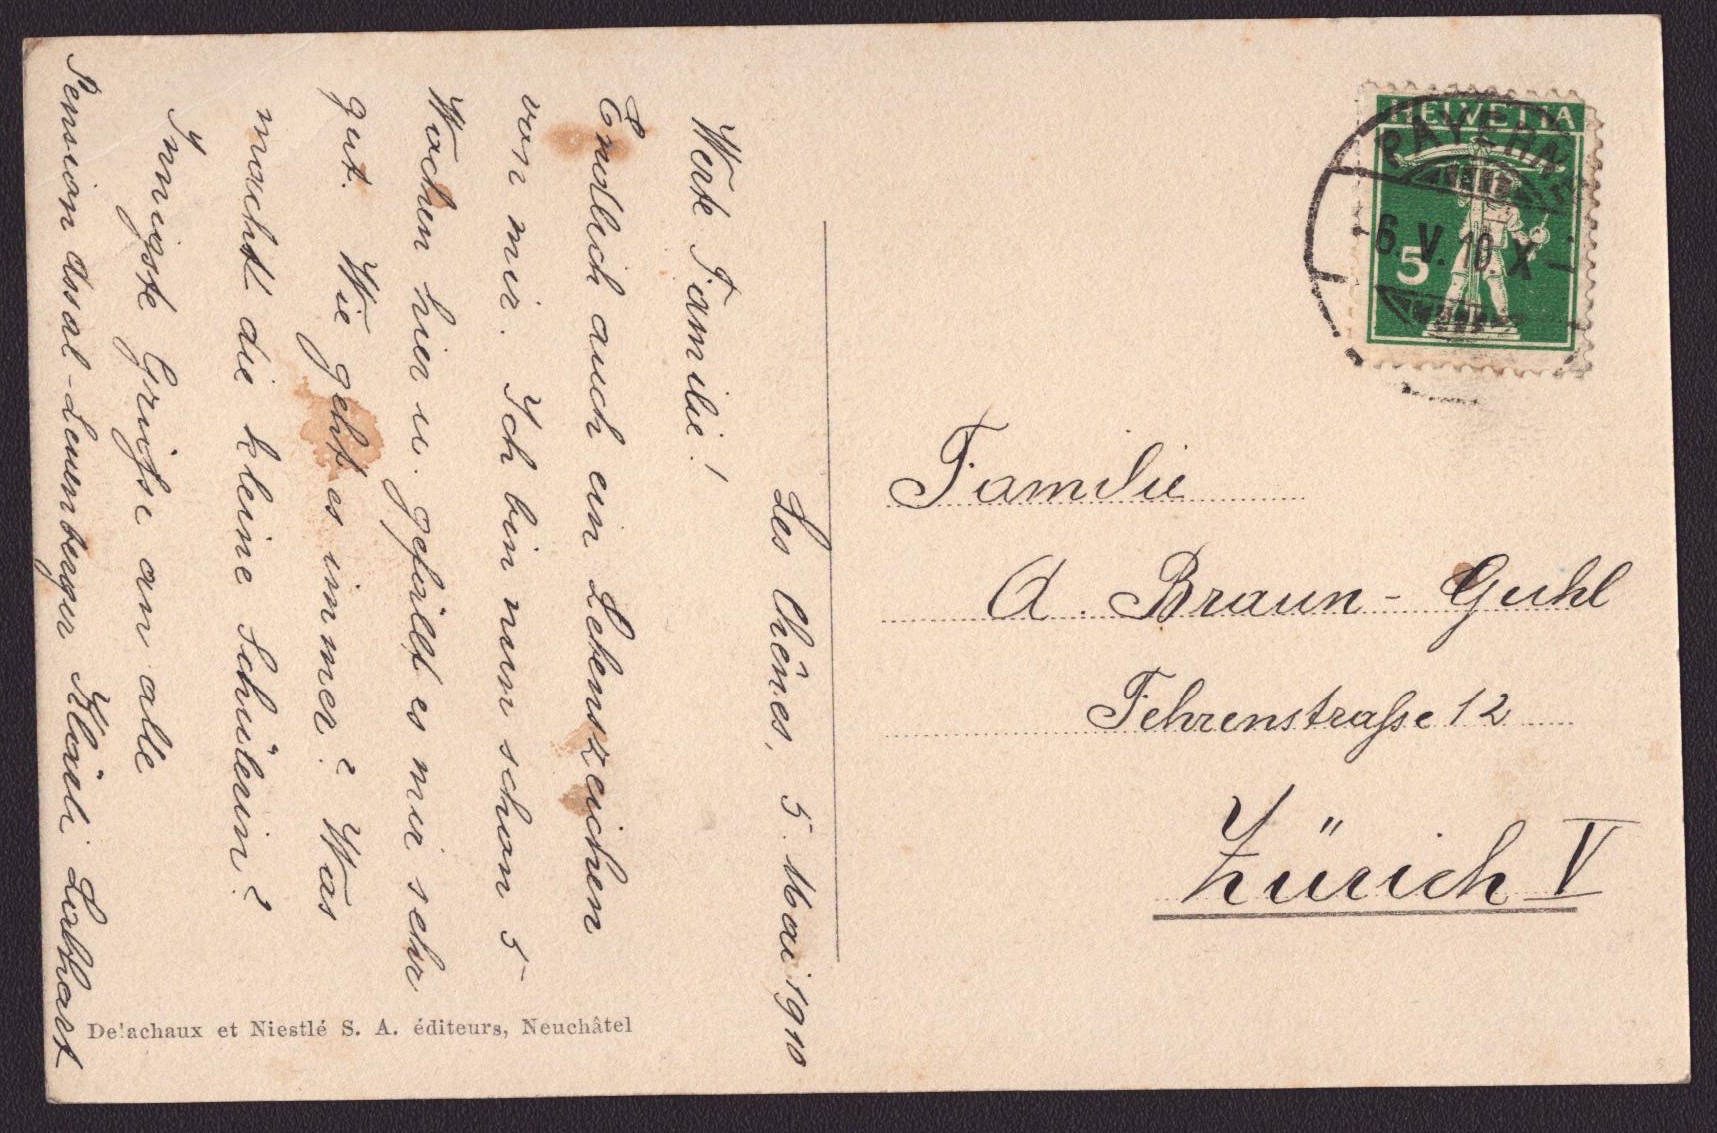 Les Chênes, 5. Mai 1910
Werte Familie!
Endlich auch ein Lebenszeichen
von mir. Ich bin nun schon 5
Wochen hier u. gefällt es mir sehr
gut. Wie geht es immer? Was
macht die kleine Schülerin?
Innigste Grüsse an alle
Pension Assal-Leuenberger Klärli Labhart
Delachaux et Niestlé S. A. éditeurs, Neuchâtel
HELVETIA
5
PAYERNE
6. V. 10 X
Familie
A. Braun-Guhl
Fehrenstraße 12
Zürich V